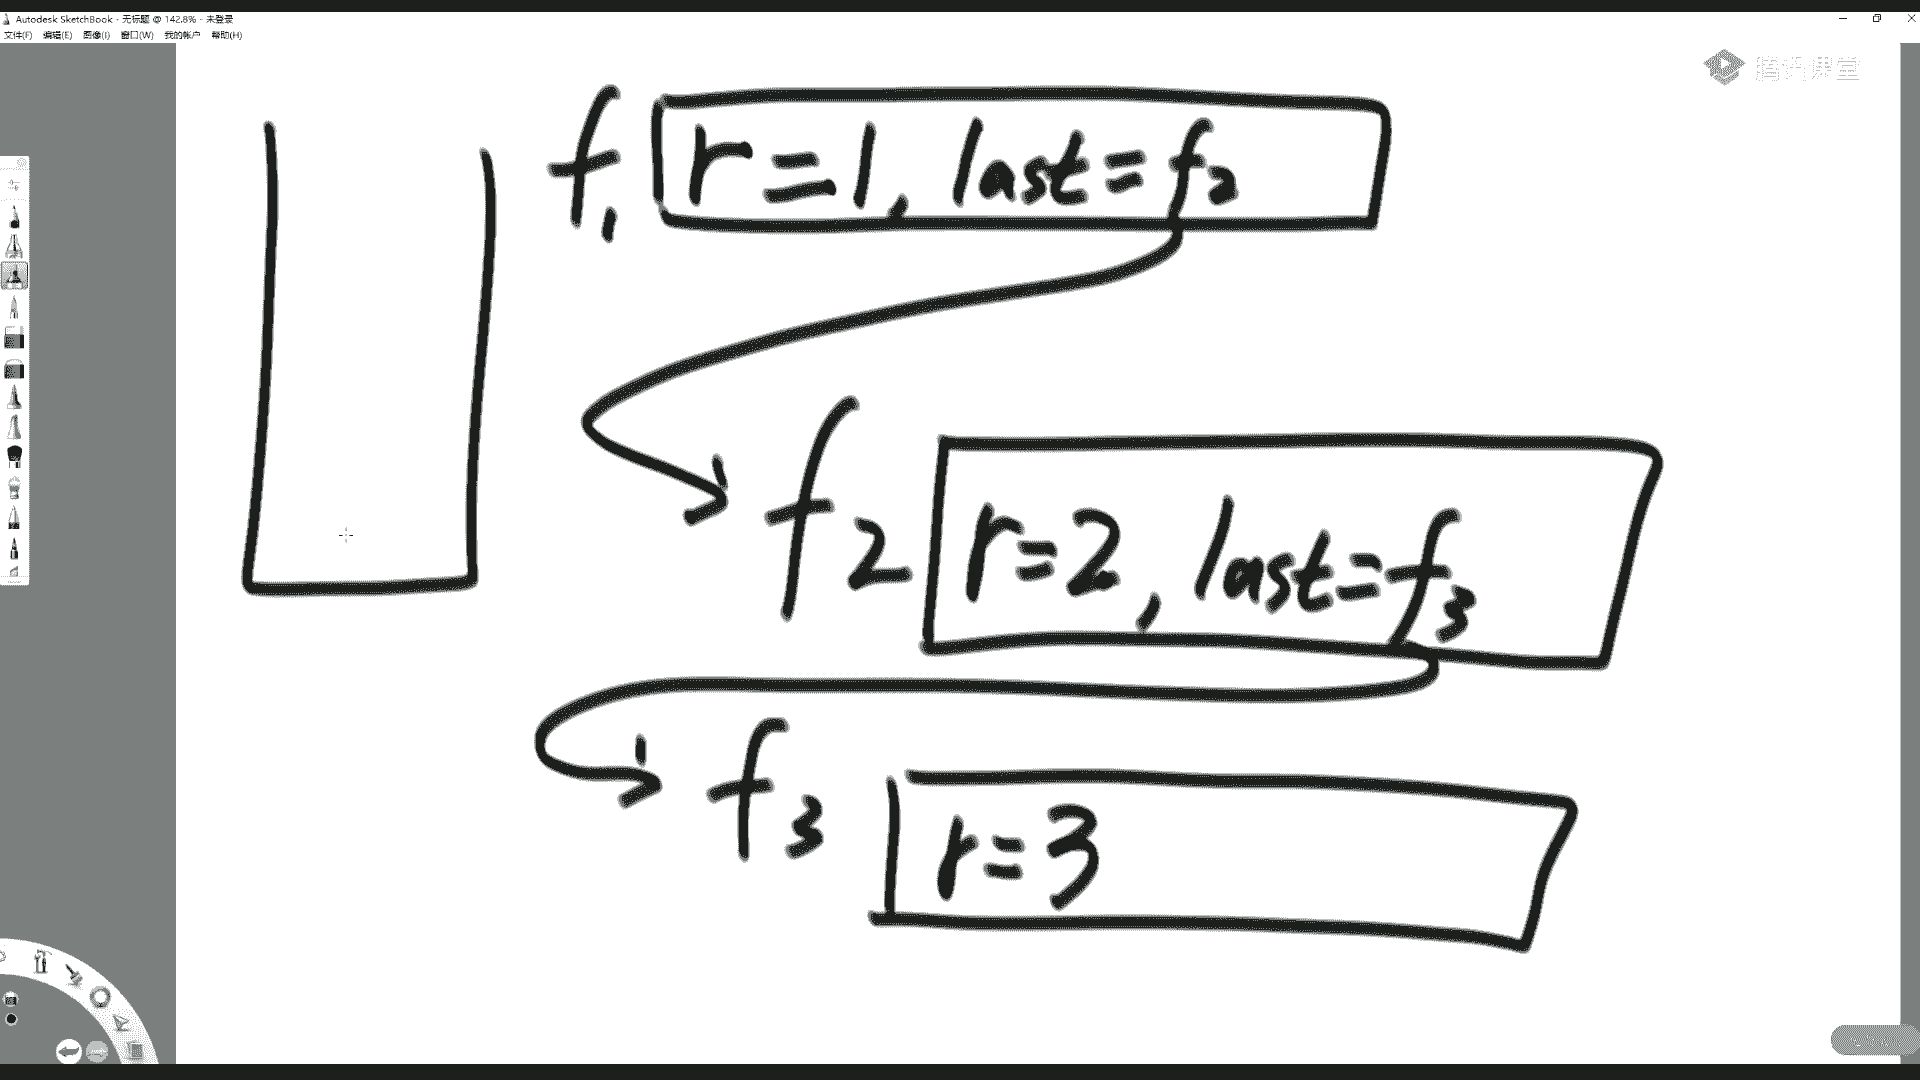 Autodesk SketchBook - 无标题 @ 142.8% - 未登录
文件(F) 编辑(E) 图像(I) 窗口(W) 我的帐户 帮助(H)
腾讯课堂
f1 r=1, last=f2
f2 r=2, last=f3
f3 r=3